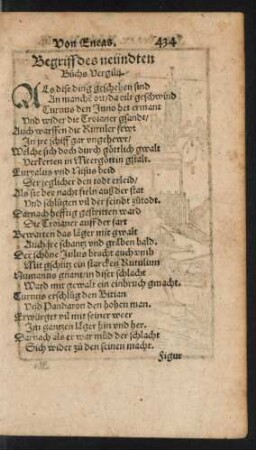 Von Eneas. 434
Begriff des neündten
Büchs Vergilij.
Als dise ding geschehen sind
An manchē ort/da eilt geschwind
Turnus den Juno het ermant
Vnd wider die Troianer gsandt/
Auch warffen die Rutuler fewr
In jre schiff gar vngehewr/
Welche sich doch durch göttlich gwalt
Verkerten in Meergöttin gstalt.
Euryalus vnd Nisus beid
Der jeglicher den todt erleid/
Als sie bey nacht fieln auß der stat
Vnd schlügten vil der feindt zůtodt.
Darnach hefftig gestritten ward
Die Troianer auff der fart
Bewarten das läger mit gwalt
Auch jre schantz vnd gräben bald.
Der schöne Julus bracht auch vmb
Mit gschütz ein starcken Rutulum
Numanus gnant/in diser schlacht
Ward mit gewalt ein einbruch gmacht.
Turnus erschlůg den Bitian
Vnd Pandaron den hohen man.
Erwürget vil mit seiner weer
Im gantzen läger hin vnd her.
Darnach als er war müd der schlacht
Sich wider zů den seinen macht.
Figur